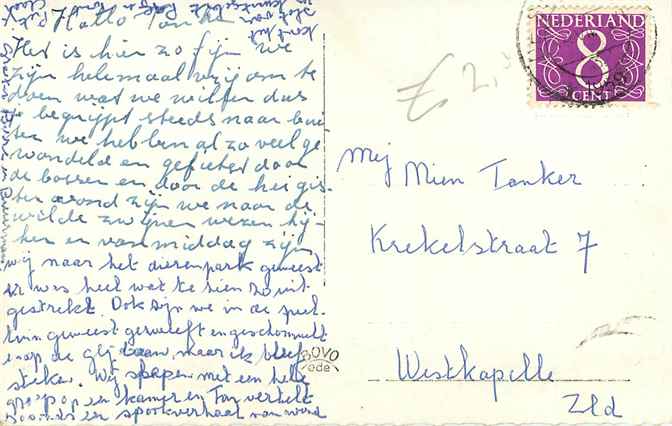 Hallo Tonker
Het is hier zo fijn we
zijn helemaal vrij om te
doen wat we willen dus
je begrijpt steeds naar bui
ten we hebben al zo veel ge
wandeld en gefietst door
de bossen en door de hei gis-
ter avond zijn we naar de
wilde zwijnen wezen kij-
ken en van middag zijn
wij naar het dierenpark geweest
er was heel wat te zien zo uit
gestrekt. Ook zijn we in de speel-
tuin geweest gewipt en geschommelt
en op de glij baan, maar ik bleef
steken. Wij slapen met een hele
groep op een kamer en Ton vertelt
een spookverhaal
NEDERLAND
8
CENT
£ 2,
Mej Mien Tonker
Krekelstraat 7
Westkapelle
Zld
BOVO
ede